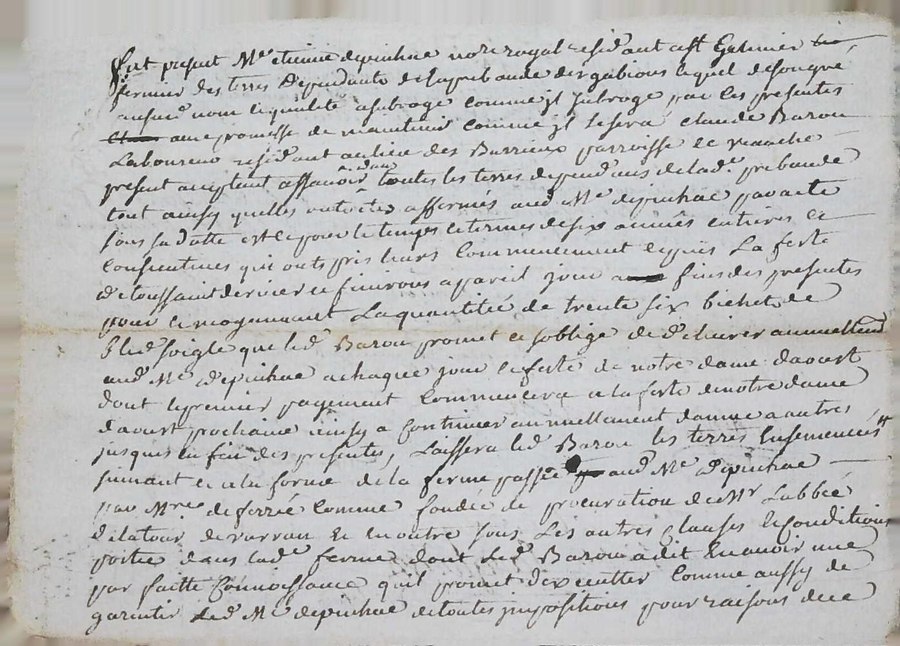 fut present Me etienne depinhac nore royal residant a st Galmier
fermier des terres dependante de la prebande des gabious lequel de son gré
audit nom le qualité asubroge comme jl subroge par les presentes
avec promesse de maintenir comme jl lesera claude Baron
Laboureur residant au lieu des Barrieux parroisse de
present acceptant assavoir toutes les terres dependans de lade prebande
tout ainsy quelles ont etes affermés aud Me depinhac par acte
sous sa datte est ce pour le temps et termes de six années entieres et
consecutives qui onts pris leurs commencement depuis La feste
de toussaint dernier et finirons a pareil jour fins des presentes
pour et moyennant La quantitée de trente six bichet de
bled soigle que led Baron promet et soblige de delivrer annuellement
aud Me depinhac a chaque jour et feste de notre dame daoust
dont le premier payement commencera a la feste de notre dame
daoust prochaine ainsy a continuer annuellement dannee a autres
jusques en fin des presentes, Laissera led Baron les terres Ensemencées
suivant et a la forme de la ferme passée aud Me depinhac
par Mre deferré comme fondée de procuration de Mr Labbé
delatour devarran et en outre sous Les autres clauses et conditions
portée dans lade ferme dont led Baron a dit En avoir une
par faitte Connoissance quil promet dexecutter comme aussy de
garentir led Me depinhac de toutes jmpositions pour raisons de ce